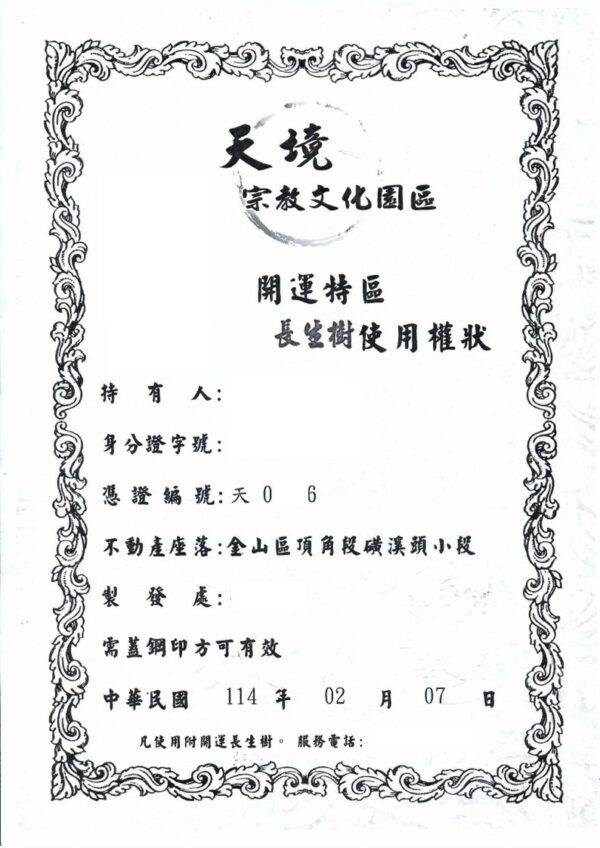 天境
宗教文化園區
開運特區
長生樹使用權狀
持有人:
身分證字號:
憑證編號:天0 6
不動產座落:金山區頂角段磺溪頭小段
製發處:
需蓋鋼印方可有效
中華民國 114 年 02 月 07 日
凡使用附開運長生樹。 服務電話: